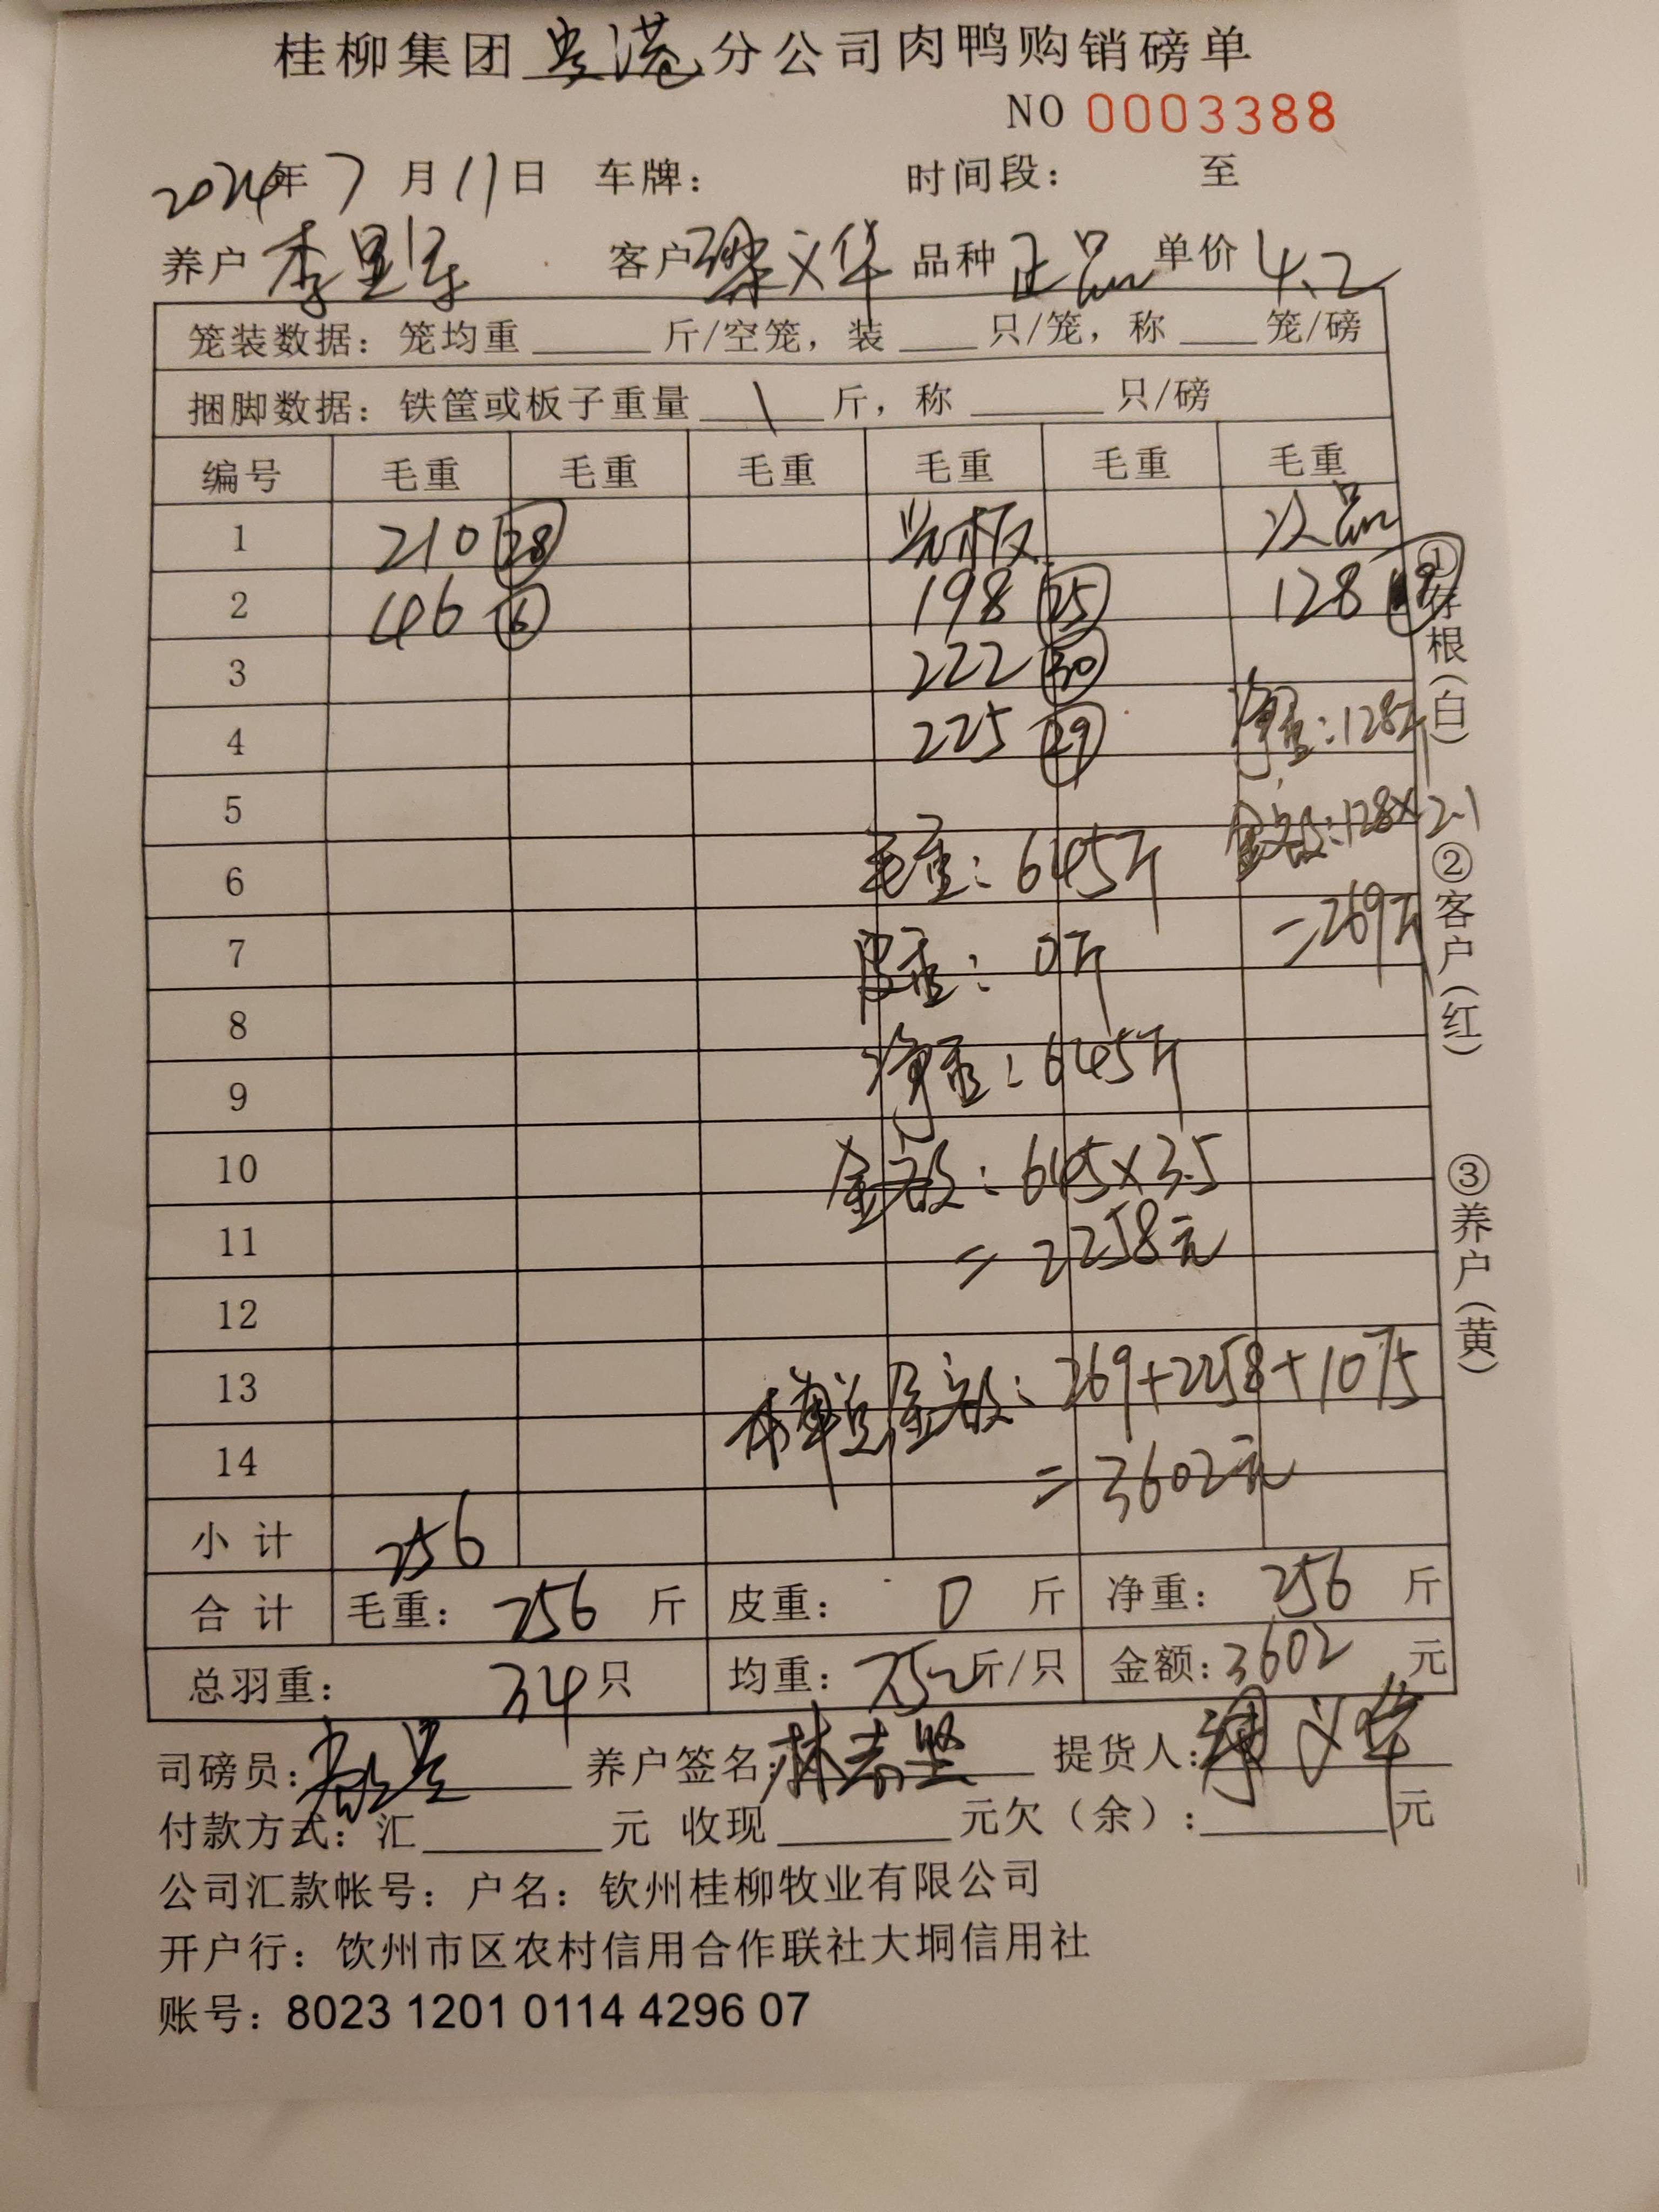 桂柳集团贵港分公司肉鸭购销磅单
NO 0003388
2024年7月11日 车牌： 时间段： 至
养户 李 客户 梁义华 品种 正品 单价 4.2
笼装数据：笼均重 斤/空笼，装 只/笼，称 笼/磅
捆脚数据：铁筐或板子重量 \ 斤，称 只/磅
编号 毛重 毛重 毛重 毛重 毛重 毛重
1 210 28 光板 次品
2 46 6 198 25 128
3 222 30
4 225 29 净重：128斤
5 金额：128×2.1
6 毛重：645斤
7 皮重：0斤 =269元
8
9 净重：645斤
10 金额：645×3.5
11 =2258元
12
13 本单总金额：269+2258+1075
14 =3602元
小计 256
合计 毛重：256斤 皮重：0斤 净重：256斤
总羽重：34只 均重：7.52斤/只 金额：3602元
司磅员： 养户签名：林志坚 提货人：义华
付款方式：汇 元 收现 元欠（余）： 元
公司汇款帐号：户名：钦州桂柳牧业有限公司
开户行：饮州市区农村信用合作联社大垌信用社
账号：8023 1201 0114 4296 07
①存根（白）
②客户（红）
③养户（黄）